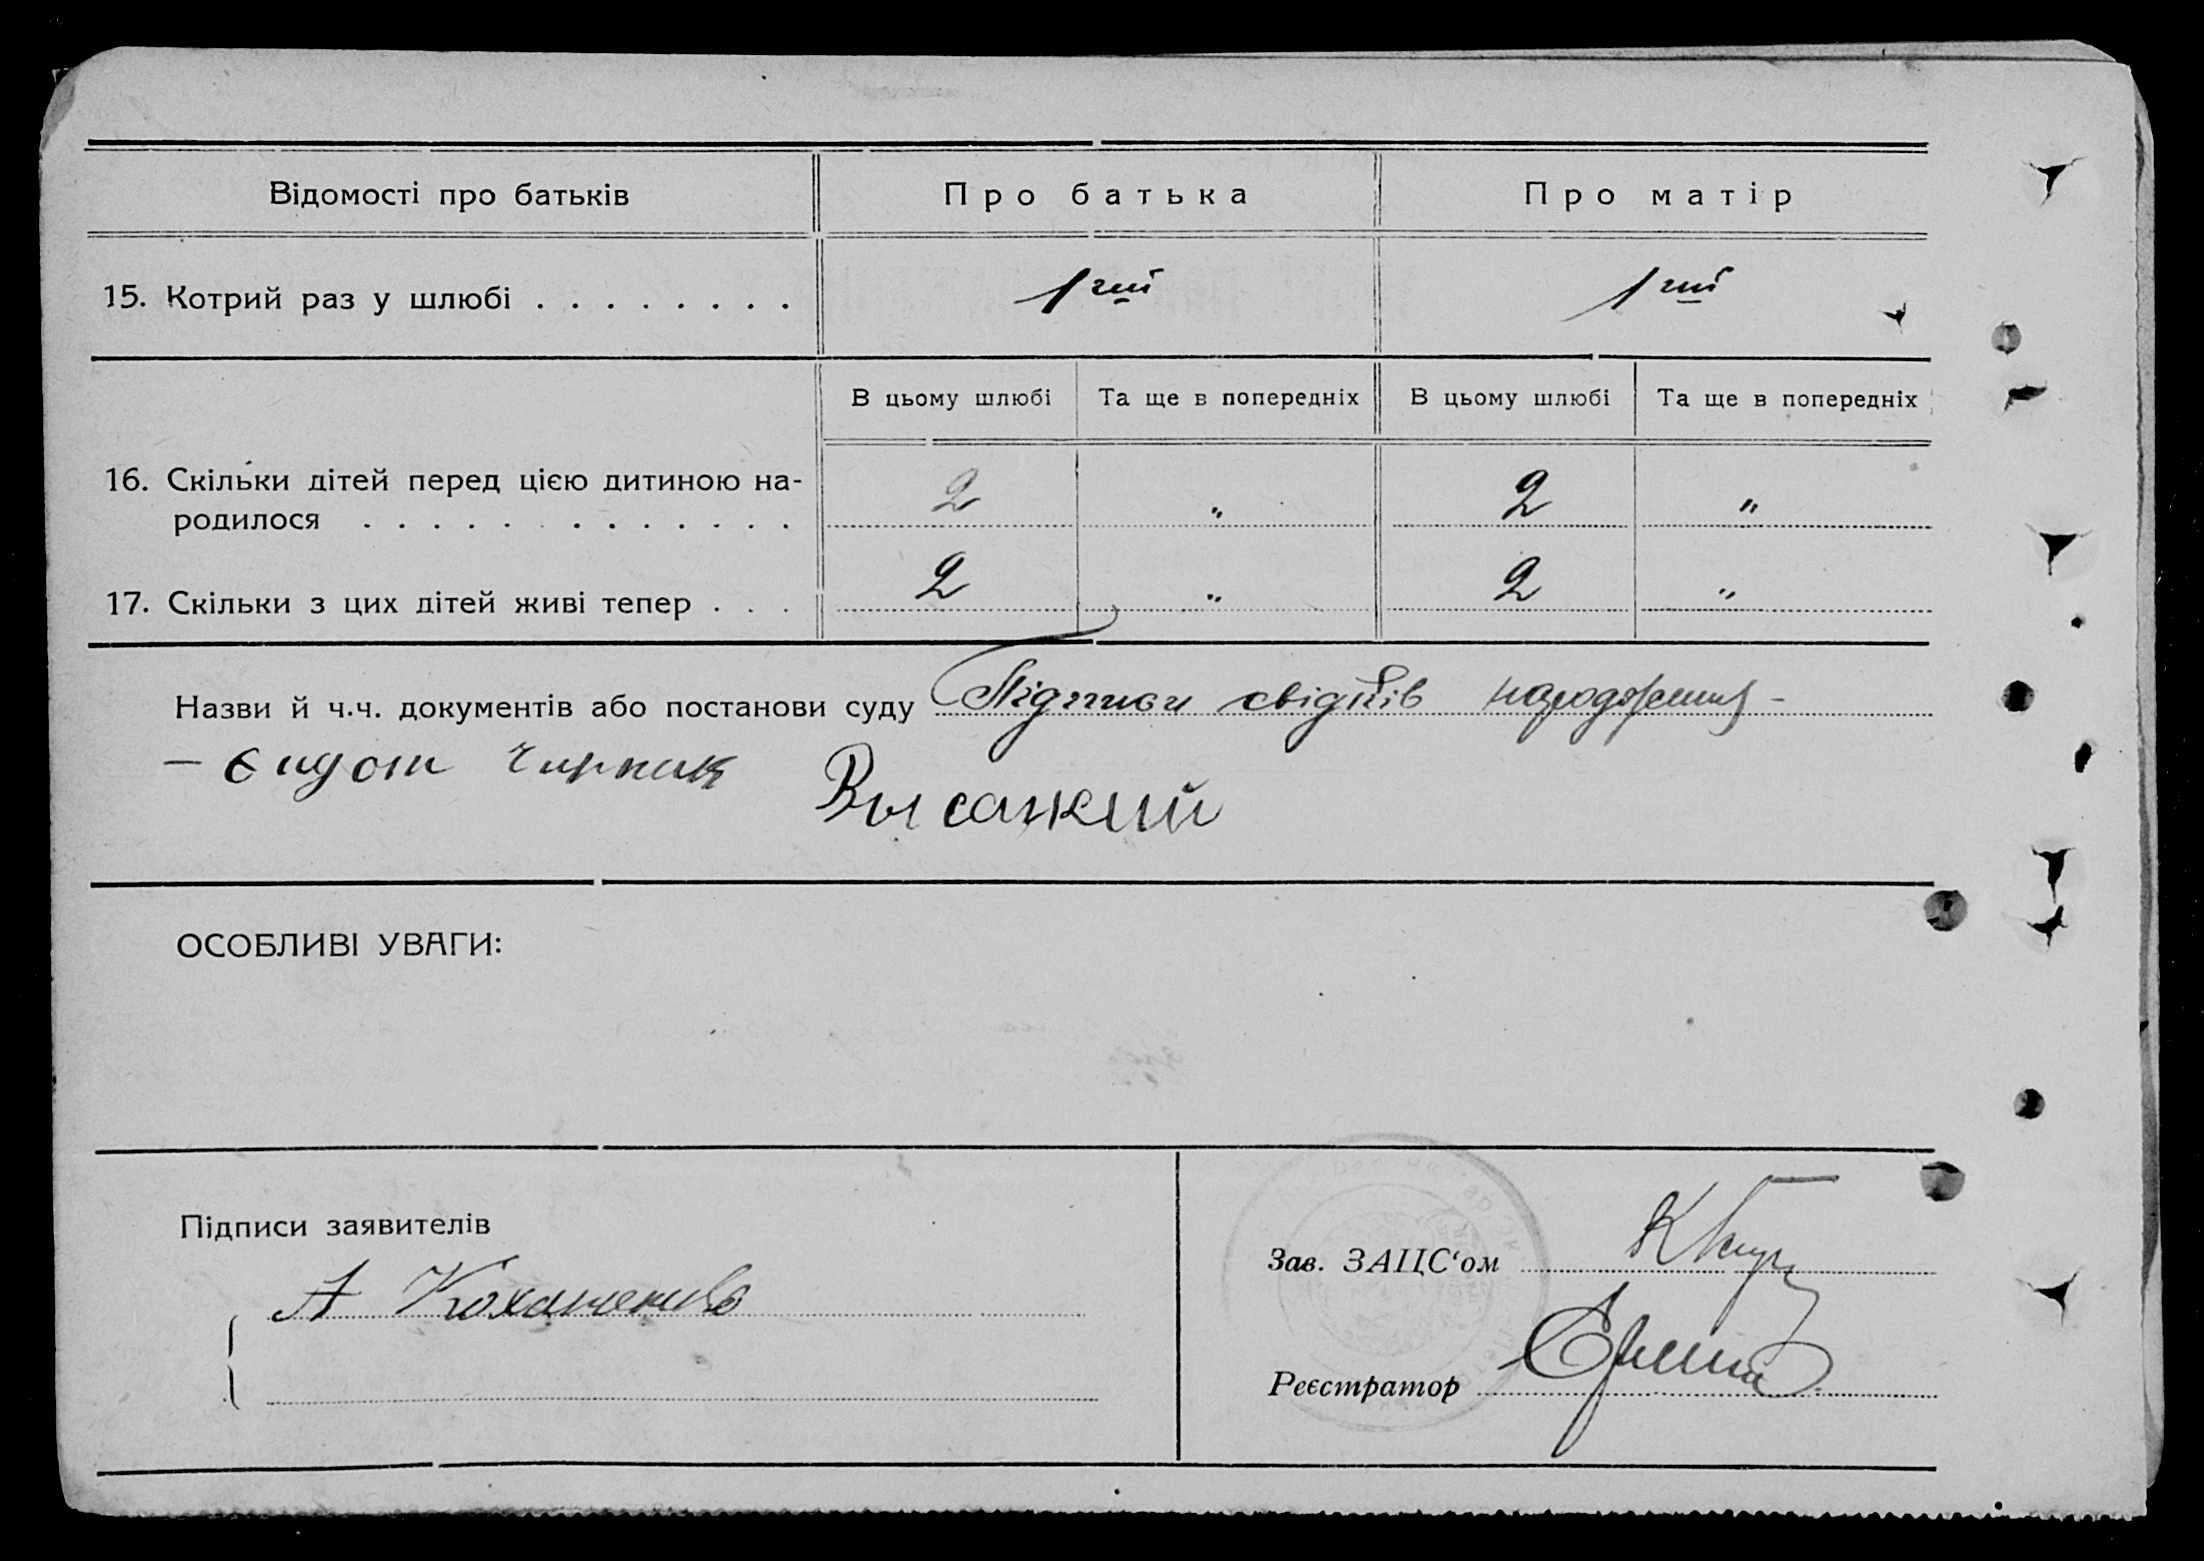 Відомості про батьків Про батька Про матір
15. Котрий раз у шлюбі . . . . . . . . 1ший 1ший
В цьому шлюбі Та ще в попередніх В цьому шлюбі Та ще в попередніх
16. Скільки дітей перед цією дитиною на-
родилося . . . . . . . . . . . . . 2 „ 2 „
17. Скільки з цих дітей живі тепер . . . 2 „ 2 „
Назви й ч.ч. документів або постанови суду Підписи свідків народження -
Высацкий
ОСОБЛИВІ УВАГИ:
Підписи заявителів
А Коханенко
Зав. ЗАЦС‘ом
Реєстратор